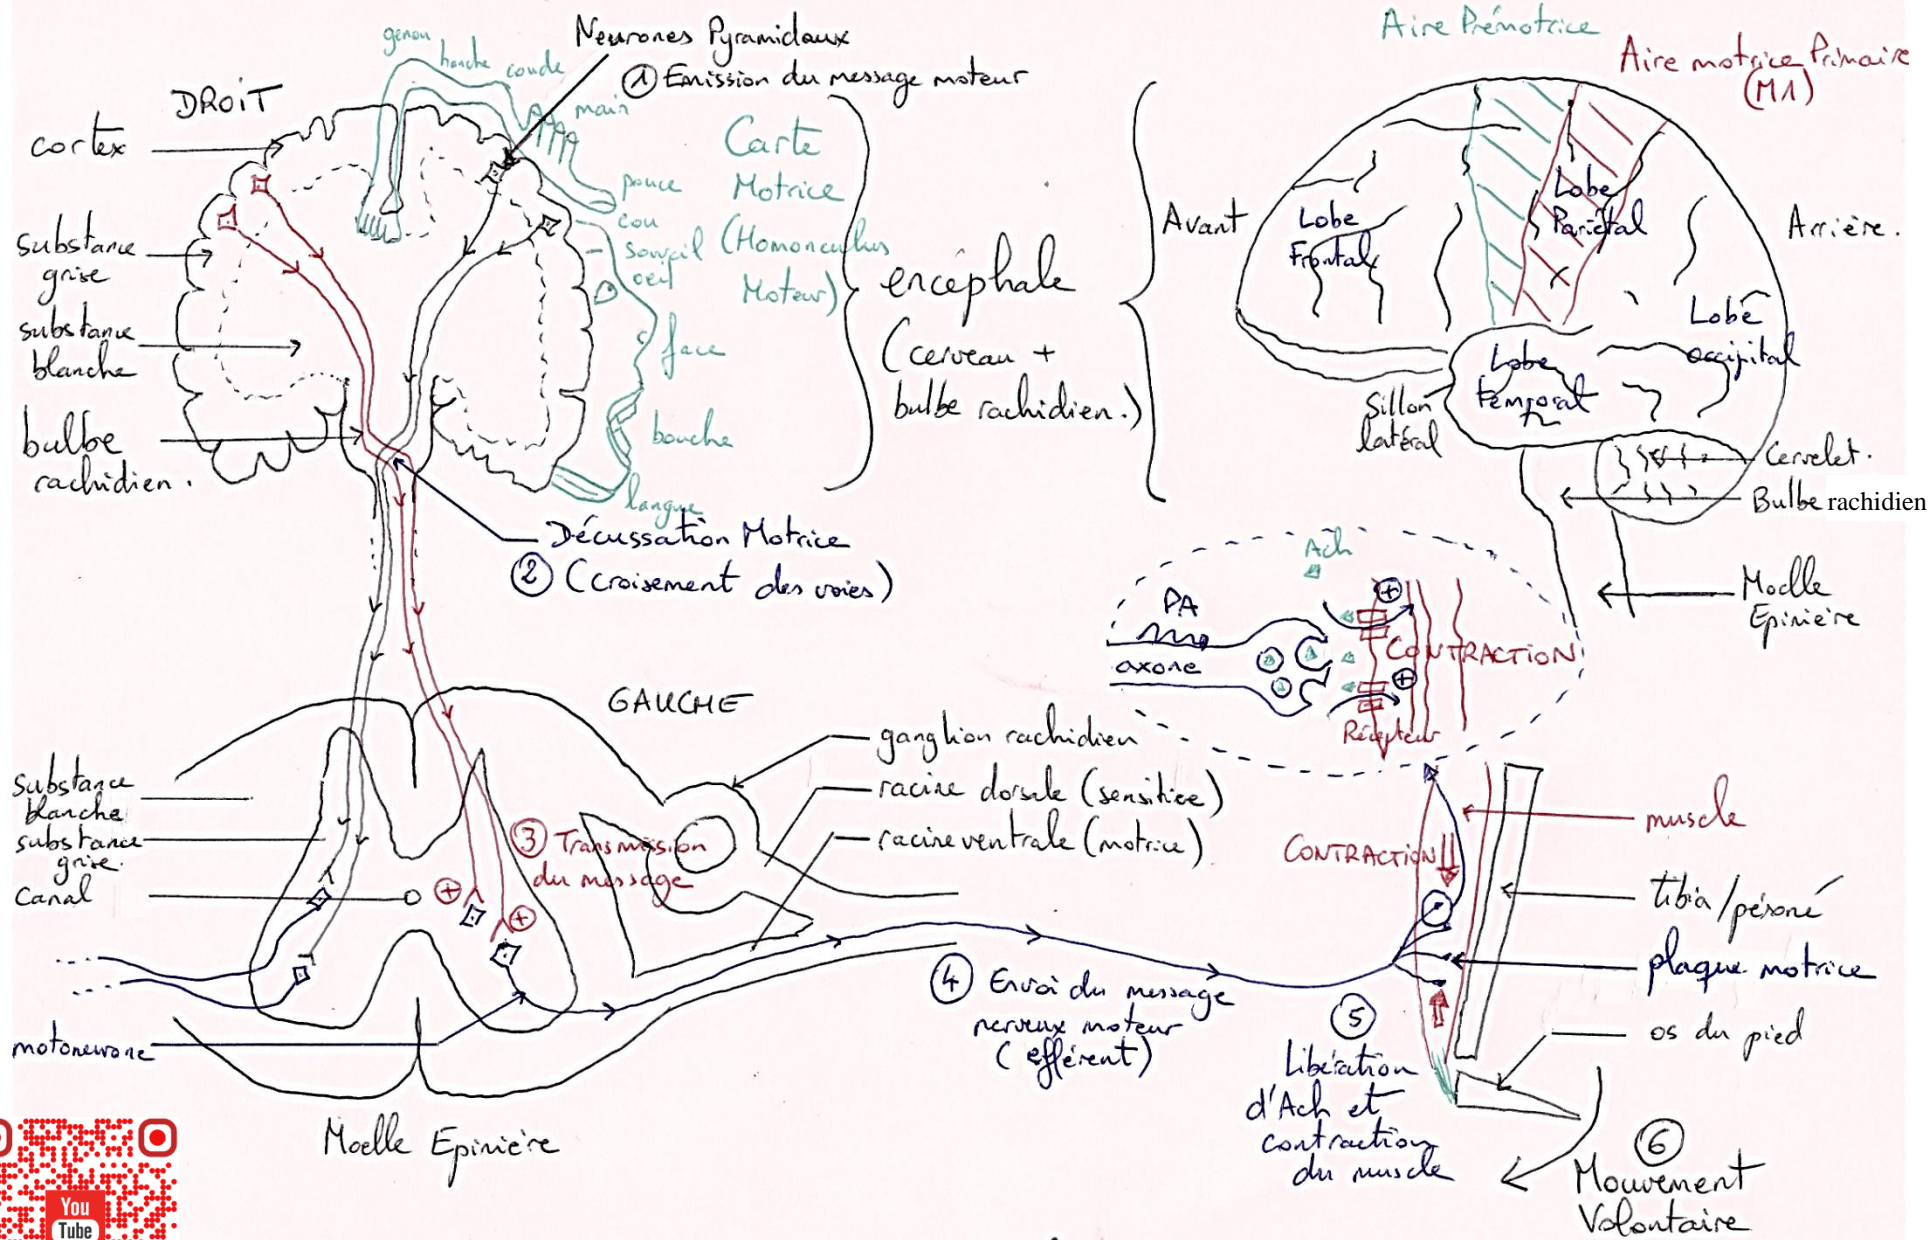 genou
hanche
coude
main
pouce
cou
sourcil
oeil
face
bouche
langue
Neurones Pyramidaux
① Emission du message moteur
DROIT
cortex
substance
grise
substance
blanche
bulbe
rachidien.
Carte
Motrice
(Homonculus
Moteur)
encéphale
(cerveau +
bulbe rachidien.)
Décussation Motrice
② (croisement des voies)
Aire Prémotrice
Aire motrice Primaire
(M1)
Avant
Arrière.
Lobe
Frontal
Lobe
Pariétal
Lobe
occipital
Lobe
Temporal
Sillon
latéral
Cervelet.
Bulbe rachidien
Moelle
Epinière
Ach
PA
axone
CONTRACTION
Récepteur
GAUCHE
ganglion rachidien
racine dorsale (sensitive)
racine ventrale (motrice)
substance
blanche
substance
grise.
Canal
motoneurone
③ Transmission
du message
Moelle Epinière
④ Envoi du message
nerveux moteur
(efférent)
CONTRACTION
muscle
tibia/péroné
plaque motrice
os du pied
⑤
Libération
d'Ach et
contraction
du muscle
⑥
Mouvement
Volontaire
You
Tube